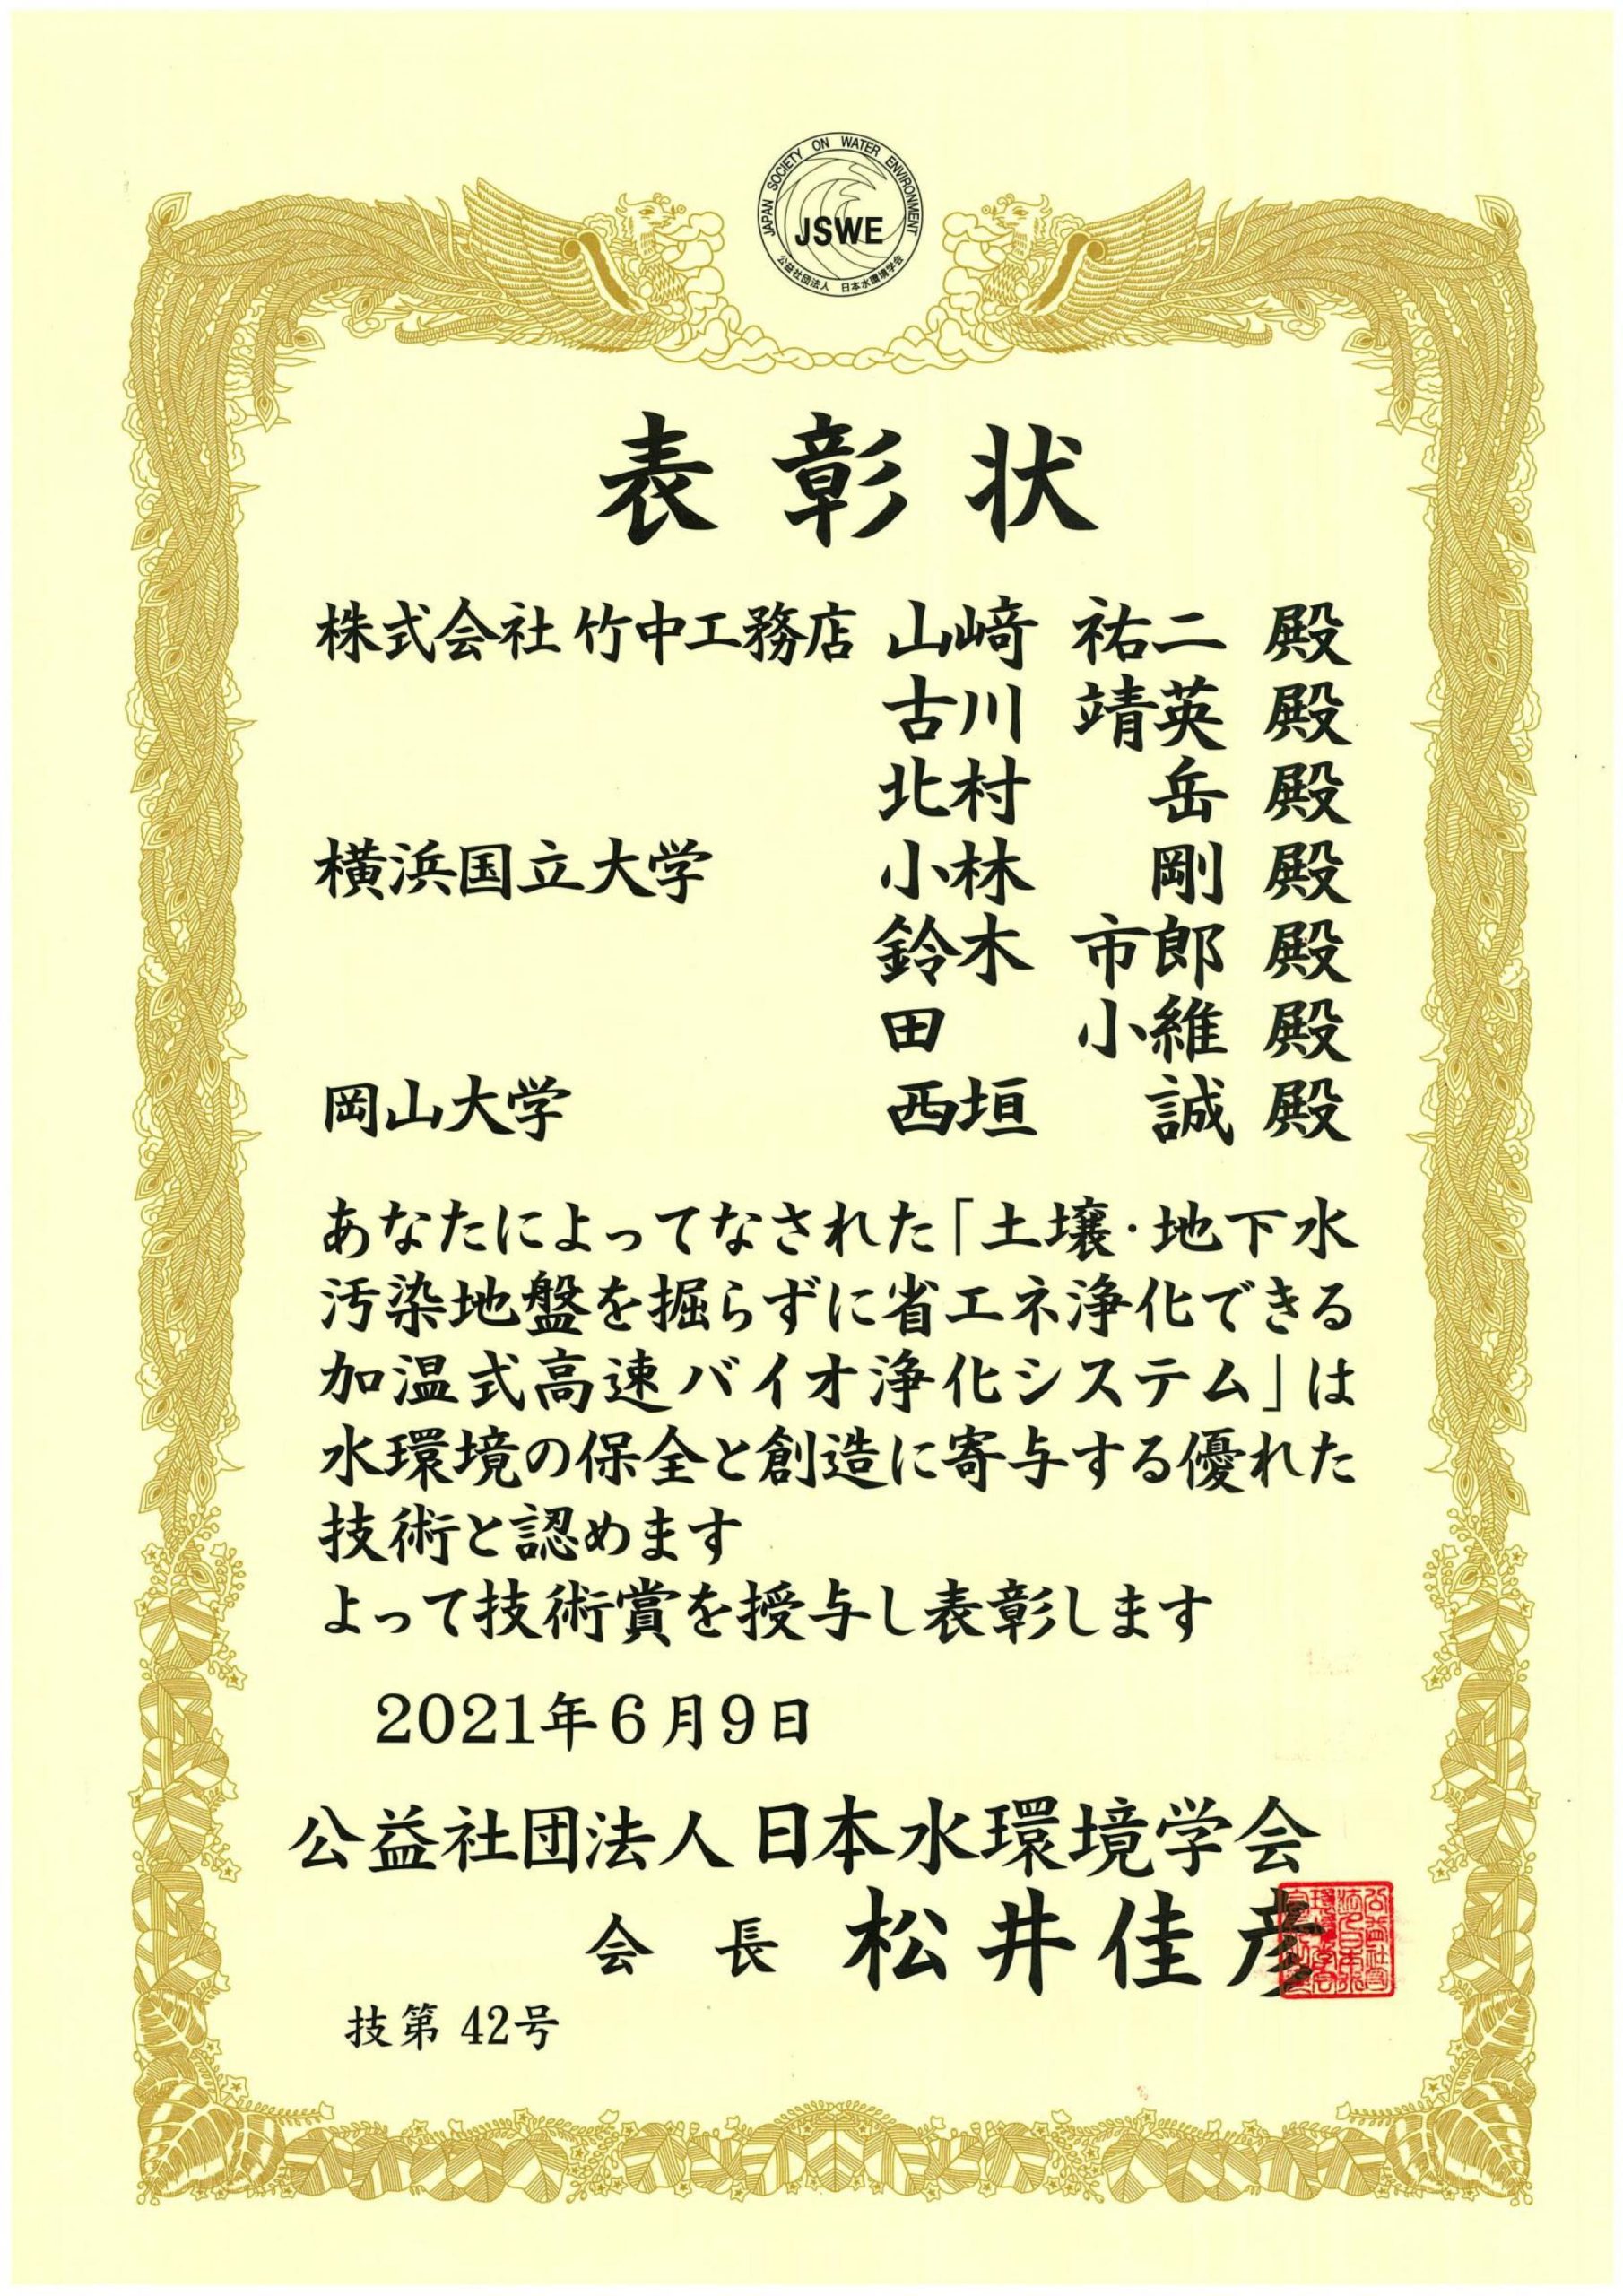 JAPAN SOCIETY ON WATER ENVIRONMENT
JSWE
公益社団法人 日本水環境学会
表彰状
株式会社 竹中工務店 山﨑 祐二 殿
古川 靖英 殿
北村 岳 殿
横浜国立大学 小林 剛 殿
鈴木 市郎 殿
田 小維 殿
岡山大学 西垣 誠 殿
あなたによってなされた「土壌・地下水
汚染地盤を掘らずに省エネ浄化できる
加温式高速バイオ浄化システム」は
水環境の保全と創造に寄与する優れた
技術と認めます
よって技術賞を授与し表彰します
2021年6月9日
公益社団法人 日本水環境学会
会 長 松井佳彦
技第 42号